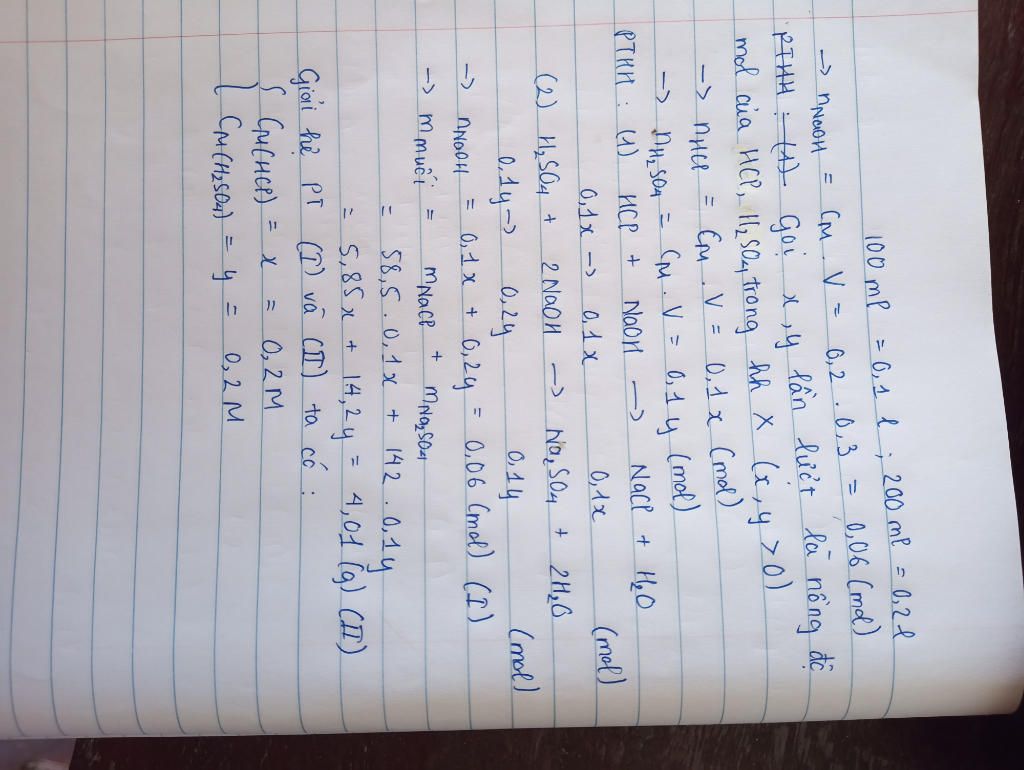 100 ml = 0,1 l ; 200 ml = 0,2 l
→ nNaOH = CM . V = 0,2 . 0,3 = 0,06 (mol)
PTHH : (1) Gọi x, y lần lượt là nồng độ
mol của HCl, H₂SO₄ trong hh X (x, y > 0)
→ nHCl = CM . V = 0,1x (mol)
→ nH₂SO₄ = CM . V = 0,1y (mol)
PTHH : (1) HCl + NaOH → NaCl + H₂O
0,1x → 0,1x 0,1x (mol)
(2) H₂SO₄ + 2NaOH → Na₂SO₄ + 2H₂O
0,1y → 0,2y 0,1y (mol)
→ nNaOH = 0,1x + 0,2y = 0,06 (mol) (I)
→ mmuối = mNaCl + mNa₂SO₄
= 58,5 . 0,1x + 142 . 0,1y
= 5,85x + 14,2y = 4,01 (g) (II)
Giải hệ PT (I) và (II) ta có :
{ CM(HCl) = x = 0,2 M
CM(H₂SO₄) = y = 0,2 M